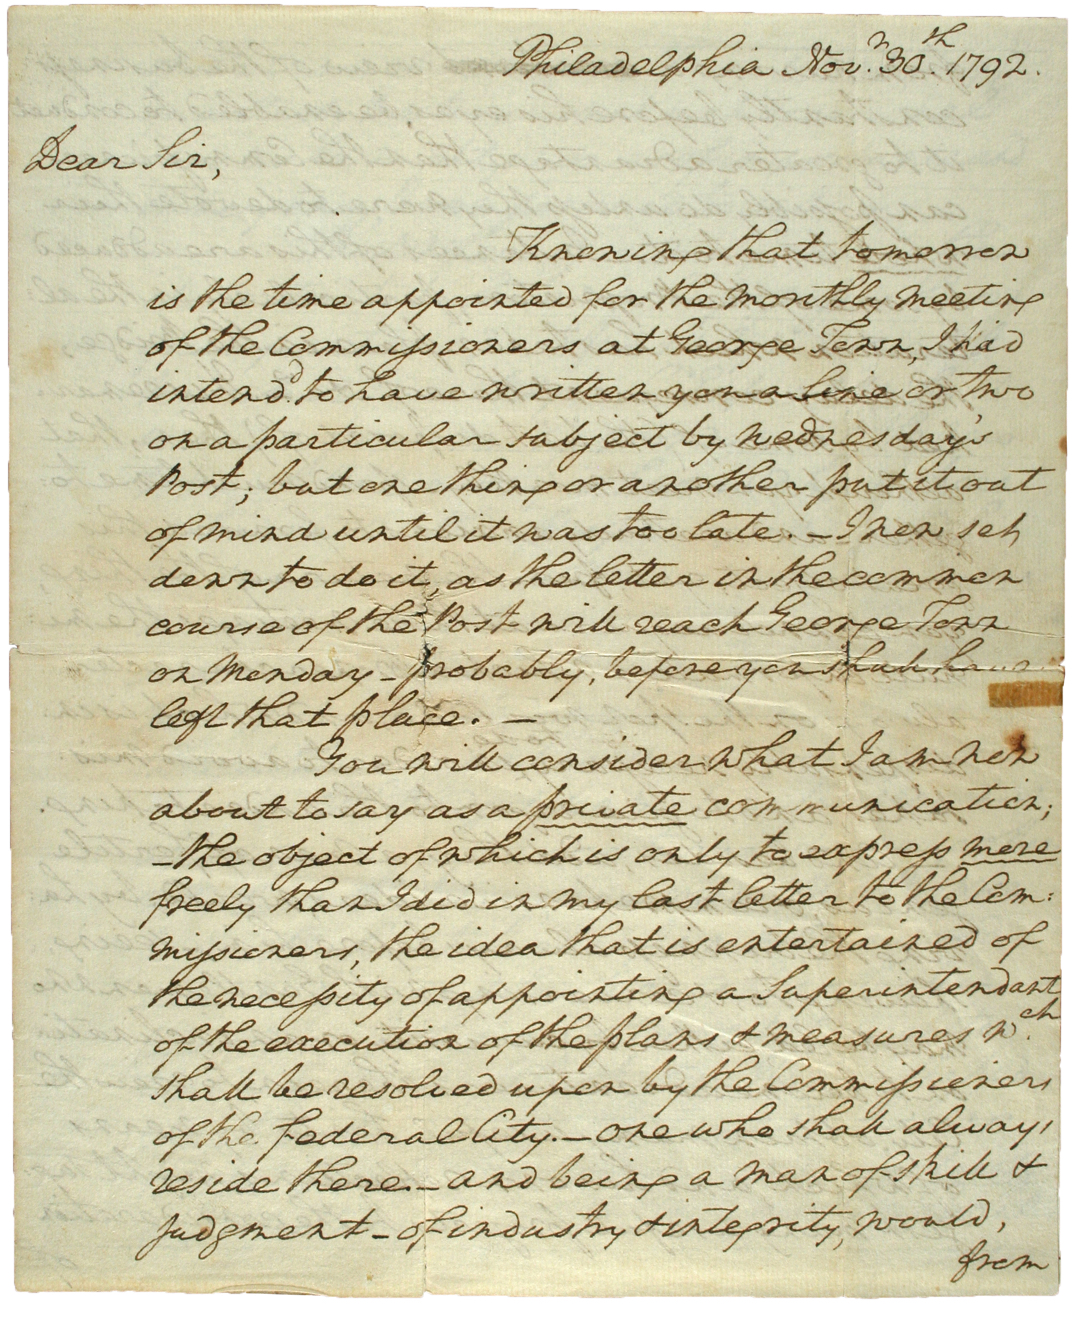 Philadelphia Novr. 30th. 1792.
Dear Sir,
Knowing that tomorrow
is the time appointed for the Monthly meeting
of the Commissioners at George Town, I had
intend'd to have written you a line or two
on a particular subject by Wednesday's
Post; but one thing or another put it out
of mind until it was too late. – I now set
down to do it, as the letter in the common
course of the Post will reach George Town
on Monday – probably, before you shall have
left that place. –
You will consider what I am now
about to say as a private communication;
– the object of which is only to express more
freely than I did in my last letter to the Com:
missioners, the idea that is entertained of
the necessity of appointing a Superintendant
of the execution of the plans & measures wch.
shall be resolved upon by the Commissioners
of the Federal City. – one who shall always
reside there. – and being a man of skill &
judgment – of industry & integrity, would,
from